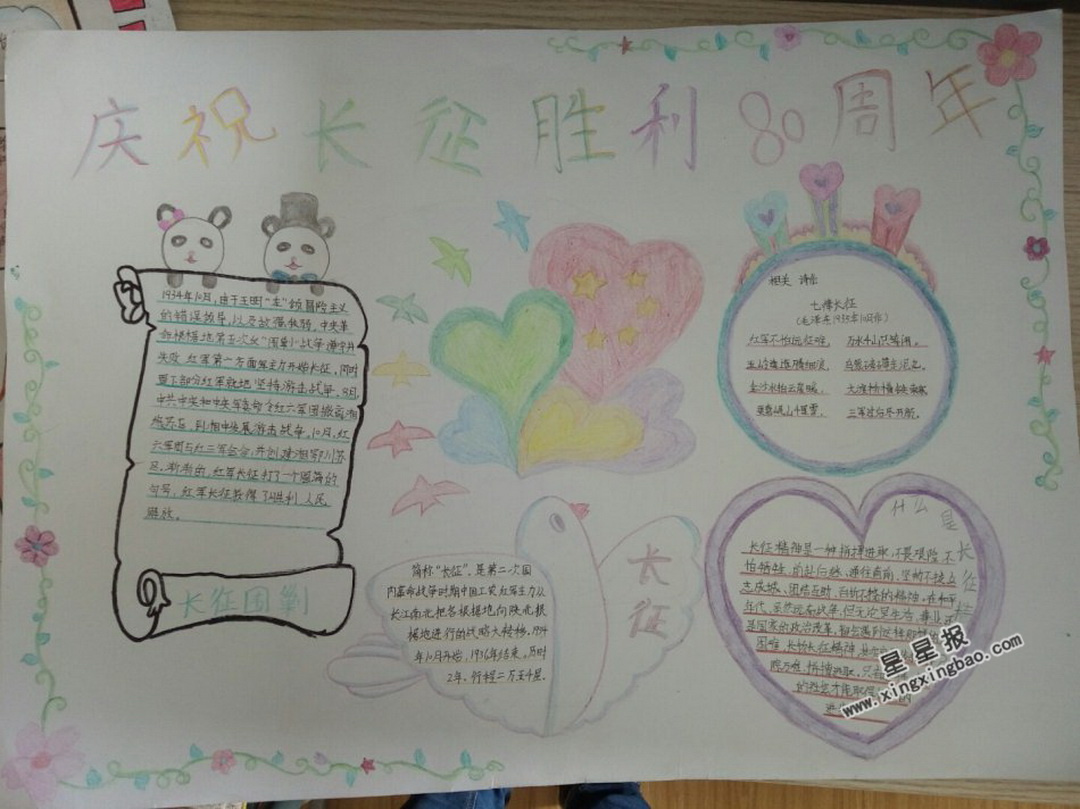 庆祝长征胜利80周年
1934年10月,由于王明"左"倾冒险主义
的错误领导,以及敌强我弱,中央革
命根据地第五次反"围剿"战争遭守并
失败,红军第一方面军主力开始长征,同时
留下部分红军就地坚持游击战争。8月,
中共中央和中央军委命令红六军团撤离湘
赣苏区,到湘中发展游击战争。10月,红
六军团与红三军会合,并创建湘鄂川苏
区,渐渐的,红军长征打了一个圆满的
句号,红军长征获得了胜利 人民
解放。
长征围剿
简称"长征",是第二次国
内革命战争时期中国工农红军主力从
长江南北把各根据地向陕北根
据地进行的战略大转移。1934
年10月开始,1936年结束。历时
2年,行程二万五千里。
长征
相关 诗歌
七律长征
(毛泽东1935年10月作)
红军不怕远征难, 万水千山只等闲。
五岭逶迤腾细浪, 乌蒙磅礴走泥丸。
金沙水拍云崖暖, 大渡桥横铁索寒。
更喜岷山千里雪, 三军过后尽开颜。
什么是长征
长征精神是一种拼搏进取,不畏艰险,不
怕牺牲,前赴后继、勇往直前,坚韧不拔,众
志成城、团结互助,百折不挠的精神。在和平
年代,虽然远离战争,但无论是生活、事业还
是国家的政治改革,都会遇到这样那样的
困难,长扬长征精神,
胜万难,拼搏进取,只有
的社会才能取得
进
星星报
www.xingxingbao.com